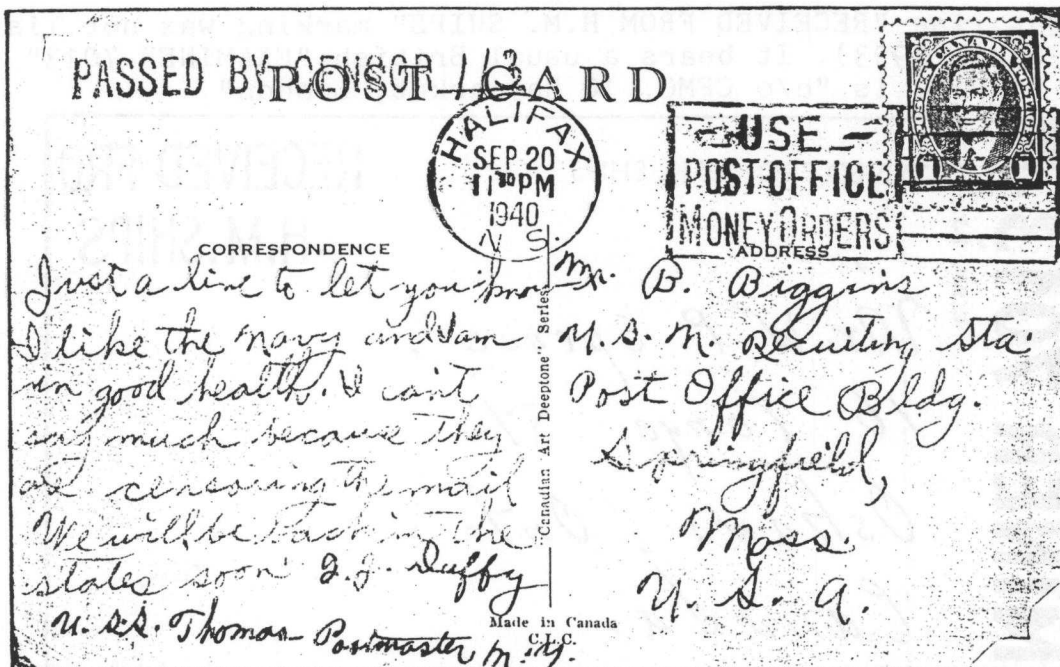 PASSED BY CENSOR
POST CARD
HALIFAX
SEP 20
11 30 PM
1940
N.S.
USE
POST OFFICE
MONEY ORDERS
CANADA
POSTES POSTAGE
1 1
CORRESPONDENCE
Just a line to let you know
I like the navy and I am
in good health. I can't
say much because they
are censoring the mail
We will be back in the
states soon J.J. Duffy
U.S.S. Thomas Postmaster N.Y.
"Canadian Art Deeptone" Series
Made in Canada
C.L.C.
ADDRESS
Mr. B. Biggins
U.S.N. Recuiting Sta.
Post Office Bldg.
Springfield,
Mass
U.S.A.
RECEIVED FROM H.M. SHIPS
RECEIVED FRO
H.M. SHIPS